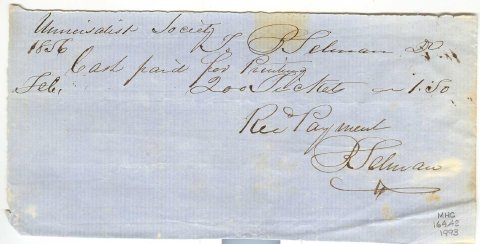 Universalist Society To P Selman Dr
1856
Cash paid for Printing
Feb. 200 Tickets 1.50
Recd Payment
P Selman
MHC
164A2
1993